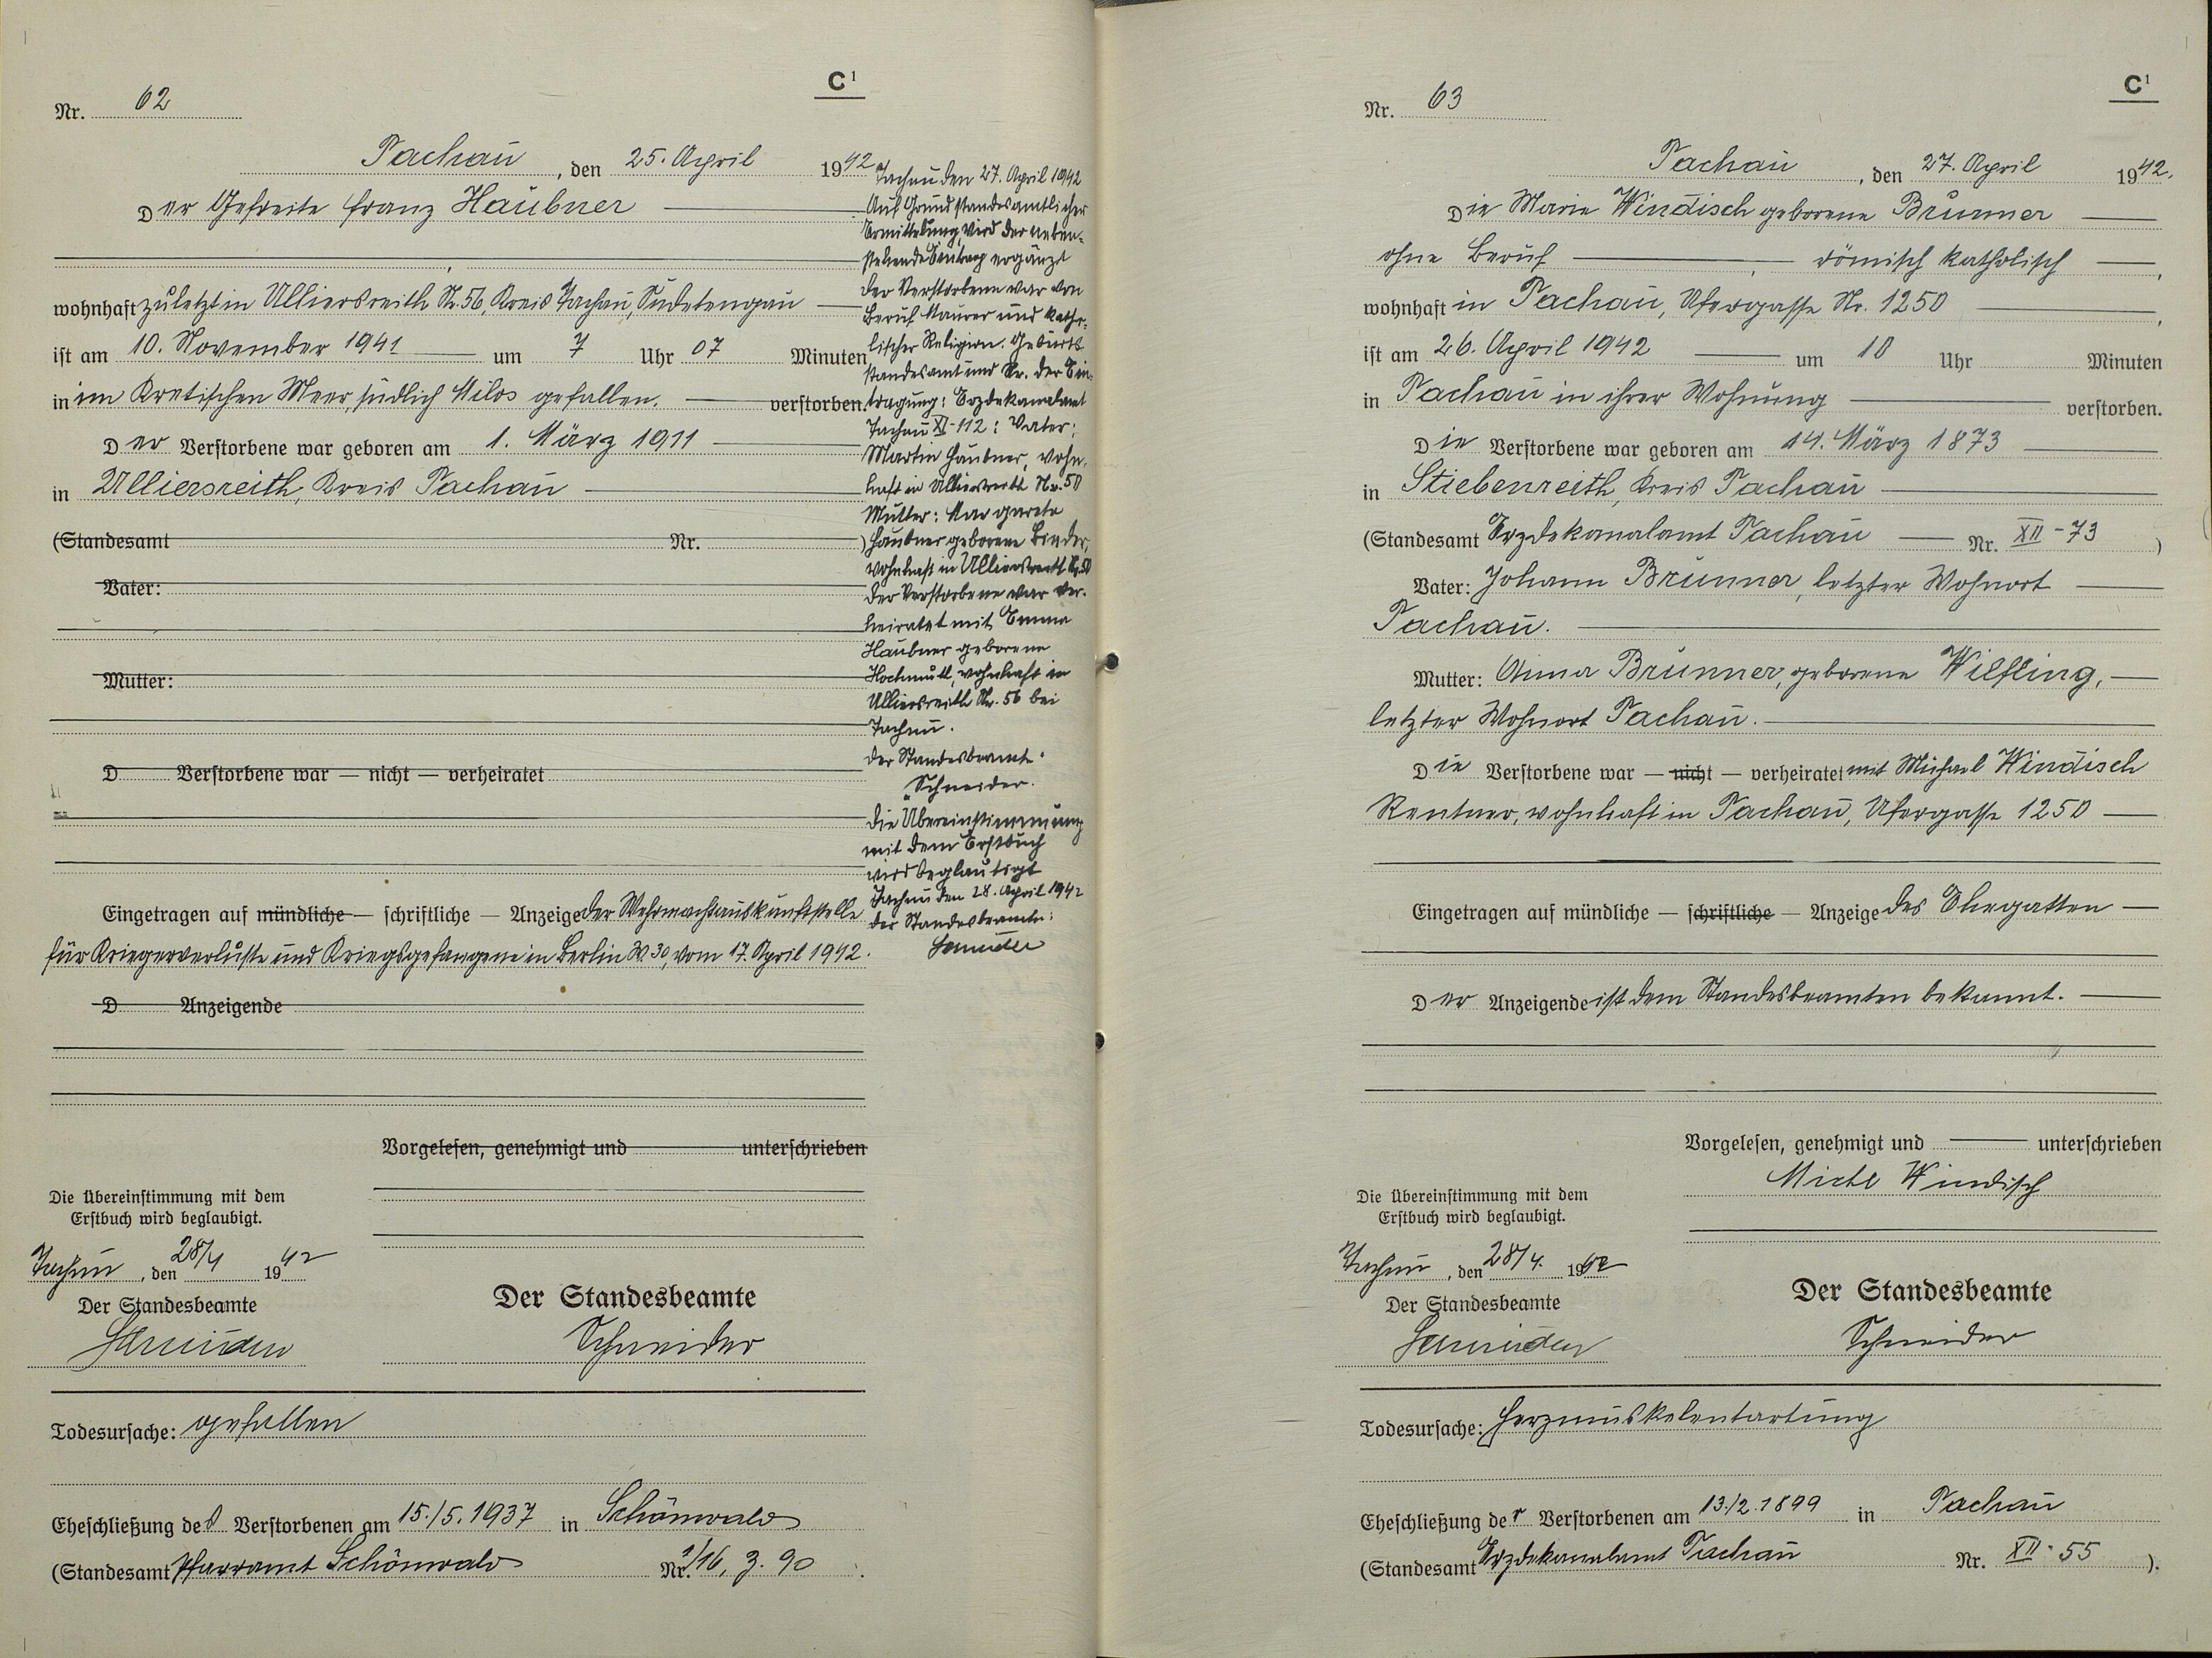 C¹
Nr. 62
Tachau, den 25. April 1942
Der Gefreite Franz Haubner
wohnhaft zuletzt in Ulliersreith Nr. 56, Kreis Tachau, Sudetengau
ist am 10. November 1941 um 7 Uhr 07 Minuten
in im Kretischen Meer, südlich Milos gefallen. verstorben.
Der Verstorbene war geboren am 1. März 1911
in Ulliersreith, Kreis Tachau
(Standesamt Nr. )
Vater:
Mutter:
D Verstorbene war — nicht — verheiratet
Eingetragen auf mündliche — schriftliche — Anzeige der Wehrmachtauskunftstelle
für Kriegerverluste und Kriegsgefangene in Berlin W. 30, vom 17. April 1942.
D Anzeigende
Vorgelesen, genehmigt und unterschrieben
Die Übereinstimmung mit dem
Erstbuch wird beglaubigt.
Tachau, den 28/4 1942
Der Standesbeamte
Der Standesbeamte
Schneider
Todesursache: gefallen
Eheschließung des Verstorbenen am 15./5. 1937 in Schönwald
(Standesamt Pfarramt Schönwald Nr. 16, 3. 90 .
Tachau den 27. April 1942
Auf Grund standesamtlicher
Ermittelung, wird der neben-
stehende Eintrag ergänzt
Der Verstorbene war von
Beruf Maurer und katho-
lischer Religion. Geburts-
standesamt und Nr. der Ein-
tragung: Erzdekanalamt
Tachau XI-112: Vater:
Martin Haubner, wohn-
haft in Ulliersreith Nr. 50
Mutter: Margarete
Haubner geborene Binder,
wohnhaft in Ulliersreith Nr. 50
Der Verstorbene war ver-
heiratet mit Emma
Haubner geborene
Hochmutl, wohnhaft in
Ulliersreith Nr. 56 bei
Tachau.
Der Standesbeamte:
Schneider.
Die Übereinstimmung
mit dem Erstbuch
wird beglaubigt
Tachau den 28. April 1942
der Standesbeamte:
C¹
Nr. 63
Tachau, den 27. April 1942.
Die Marie Windisch geborene Brunner
ohne Beruf, römisch katholisch,
wohnhaft in Tachau, Ufergasse Nr. 1250,
ist am 26. April 1942 um 10 Uhr Minuten
in Tachau in ihrer Wohnung verstorben.
Die Verstorbene war geboren am 14. März 1873
in Stiebenreith, Kreis Tachau
(Standesamt Erzdekanalamt Tachau Nr. XII-73 )
Vater: Johann Brunner, letzter Wohnort
Tachau.
Mutter: Anna Brunner, geborene Wilfling,
letzter Wohnort Tachau.
Die Verstorbene war — nicht — verheiratet mit Michael Windisch
Rentner, wohnhaft in Tachau, Ufergasse 1250
Eingetragen auf mündliche — schriftliche — Anzeige des Ehegatten
Der Anzeigende ist dem Standesbeamten bekannt.
Vorgelesen, genehmigt und unterschrieben
Michl Windisch
Die Übereinstimmung mit dem
Erstbuch wird beglaubigt.
Tachau, den 28/4. 1942
Der Standesbeamte
Der Standesbeamte
Schneider
Todesursache: Herzmuskelentartung
Eheschließung der Verstorbenen am 13./2. 1899 in Tachau
(Standesamt Erzdekanalamt Tachau Nr. XII-55 ).